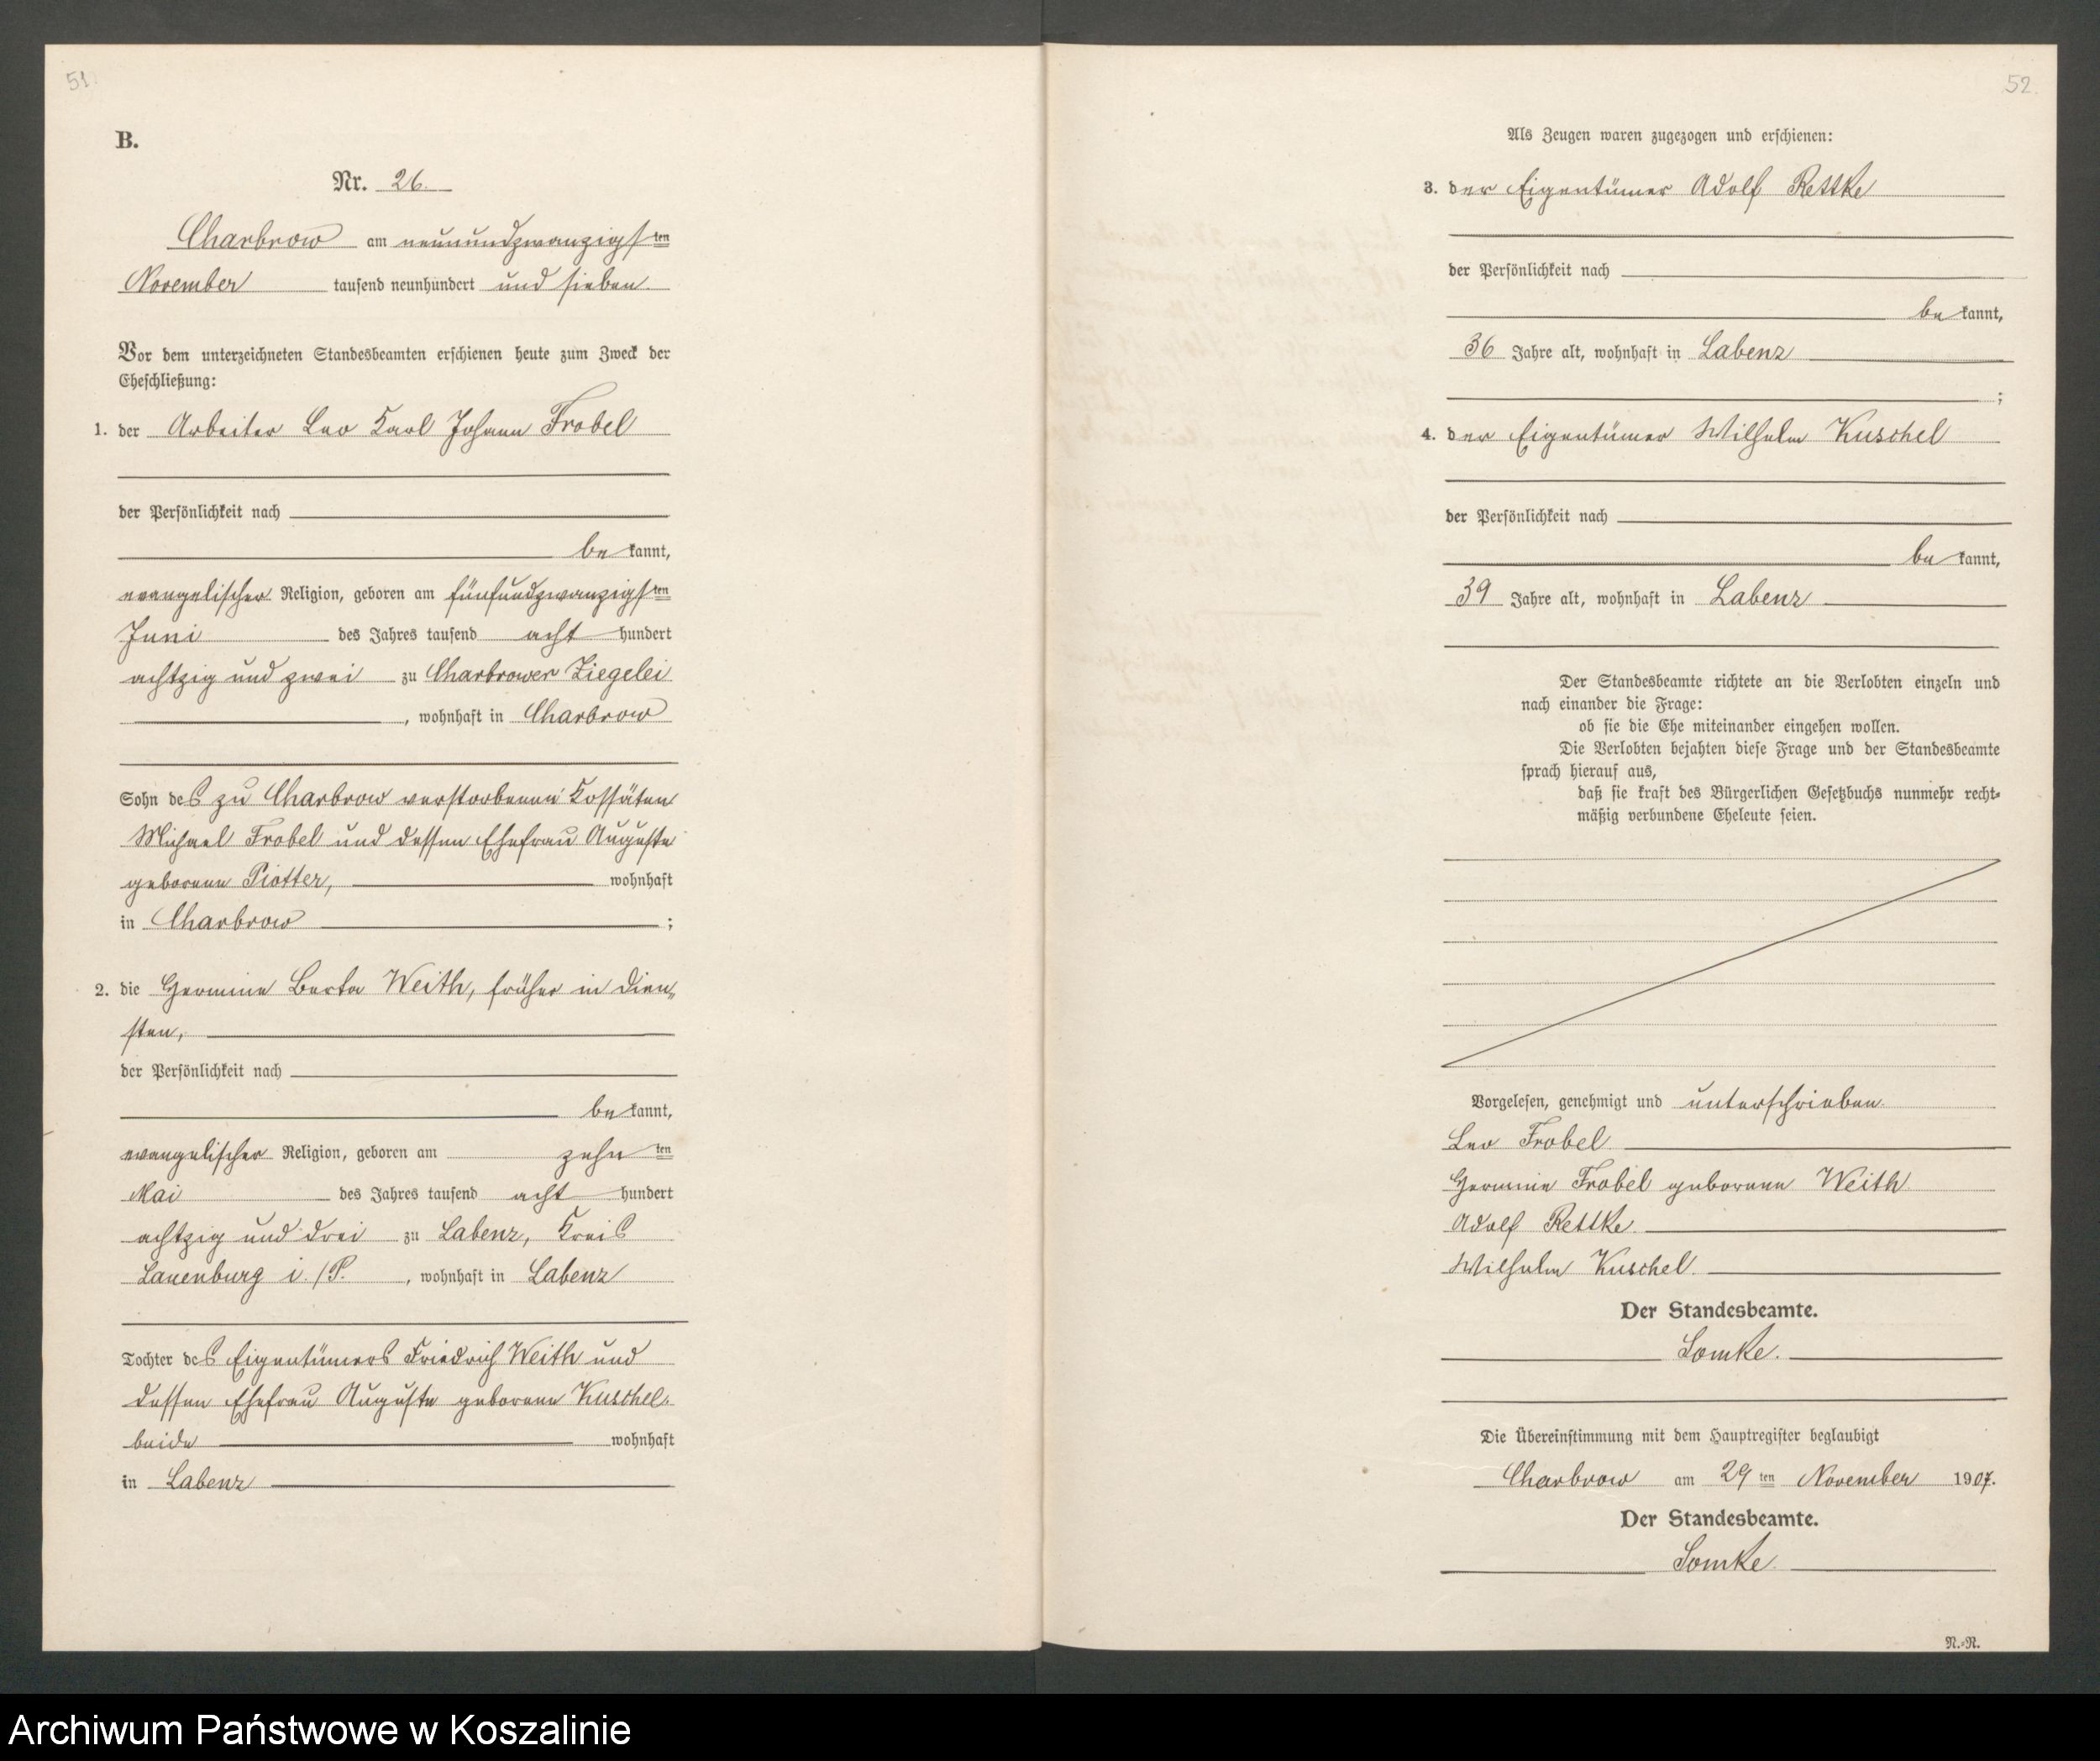 51.
B.
Nr. 26.
Charbrow am neunundzwanzigsten
November tausend neunhundert und sieben.
Vor dem unterzeichneten Standesbeamten erschienen heute zum Zweck der
Eheschließung:
1. der Arbeiter Leo Karl Johann Frobel
der Persönlichkeit nach
be kannt,
evangelischer Religion, geboren am fünfundzwanzigsten
Juni des Jahres tausend acht hundert
achtzig und zwei zu Charbrower Ziegelei
, wohnhaft in Charbrow
Sohn des zu Charbrow verstorbenen Kossäten
Michael Frobel und dessen Ehefrau Auguste
geborene Piotter, wohnhaft
in Charbrow ;
2. die Hermine Berta Weith, früher in Dien-
sten,
der Persönlichkeit nach
be kannt,
evangelischer Religion, geboren am zehn ten
Mai des Jahres tausend acht hundert
achtzig und drei zu Labenz, Kreis
Lauenburg i./P. , wohnhaft in Labenz
Tochter des Eigentümers Friedrich Weith und
dessen Ehefrau Auguste geborene Kuschel,
beide wohnhaft
in Labenz
52.
Als Zeugen waren zugezogen und erschienen:
3. der Eigentümer Adolf Rettke
der Persönlichkeit nach
be kannt,
36 Jahre alt, wohnhaft in Labenz
;
4. der Eigentümer Wilhelm Kuschel
der Persönlichkeit nach
be kannt,
39 Jahre alt, wohnhaft in Labenz
Der Standesbeamte richtete an die Verlobten einzeln und
nach einander die Frage:
ob sie die Ehe miteinander eingehen wollen.
Die Verlobten bejahten diese Frage und der Standesbeamte
sprach hierauf aus,
daß sie kraft des Bürgerlichen Gesetzbuchs nunmehr recht-
mäßig verbundene Eheleute seien.
Vorgelesen, genehmigt und unterschrieben.
Leo Frobel.
Hermine Frobel geborene Weith.
Adolf Rettke.
Wilhelm Kuschel.
Der Standesbeamte.
Lomke.
Die Übereinstimmung mit dem Hauptregister beglaubigt
Charbrow am 29 ten November 1907.
Der Standesbeamte.
Lomke.
N.-N.
Archiwum Państwowe w Koszalinie